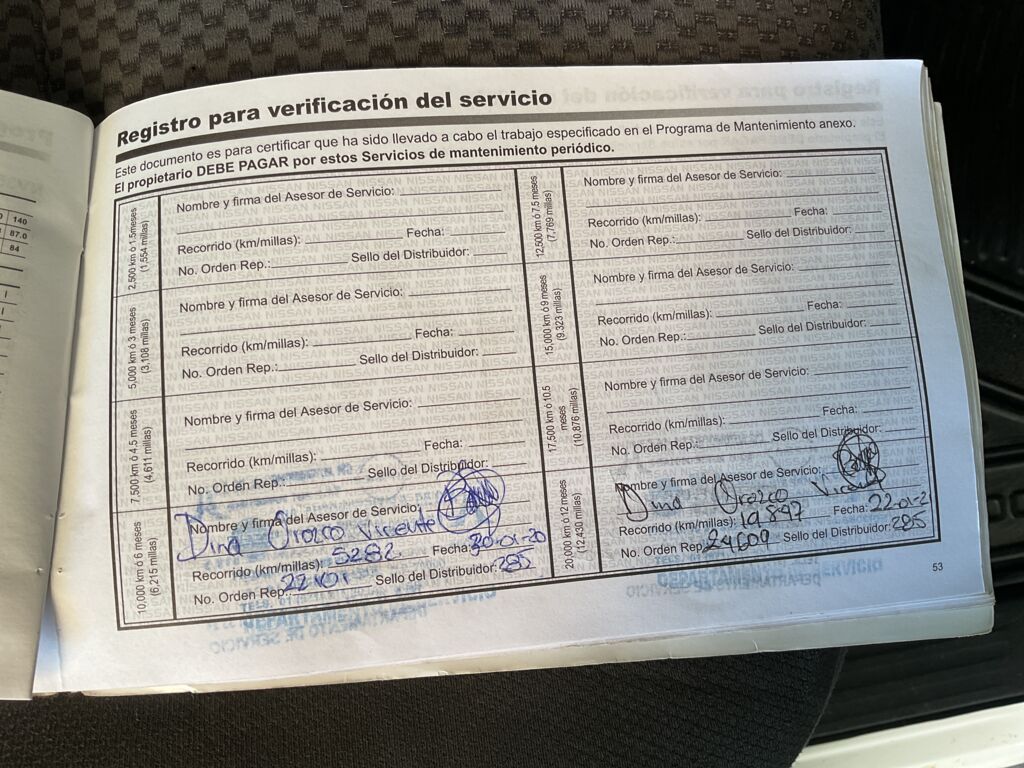 Registro para verificación del servicio
Este documento es para certificar que ha sido llevado a cabo el trabajo especificado en el Programa de Mantenimiento anexo.
El propietario DEBE PAGAR por estos Servicios de mantenimiento periódico.
2,500 km ó 1.5meses
(1,554 millas)
Nombre y firma del Asesor de Servicio:
Recorrido (km/millas): Fecha:
No. Orden Rep.: Sello del Distribuidor:
5,000 km ó 3 meses
(3,108 millas)
Nombre y firma del Asesor de Servicio:
Recorrido (km/millas): Fecha:
No. Orden Rep.: Sello del Distribuidor:
7,500 km ó 4.5 meses
(4,611 millas)
Nombre y firma del Asesor de Servicio:
Recorrido (km/millas): Fecha:
No. Orden Rep.: Sello del Distribuidor:
10,000 km ó 6 meses
(6,215 millas)
Nombre y firma del Asesor de Servicio:
Dina Orozco Vicente
Recorrido (km/millas): 5282 Fecha: 30-01-20
No. Orden Rep.: 22101 Sello del Distribuidor: 285
DEPARTAMENTO DE SERVICIO
12,500 km ó 7.5 meses
(7,769 millas)
Nombre y firma del Asesor de Servicio:
Recorrido (km/millas): Fecha:
No. Orden Rep.: Sello del Distribuidor:
15,000 km ó 9 meses
(9,323 millas)
Nombre y firma del Asesor de Servicio:
Recorrido (km/millas): Fecha:
No. Orden Rep.: Sello del Distribuidor:
17,500 km ó 10.5
meses
(10,876 millas)
Nombre y firma del Asesor de Servicio:
Recorrido (km/millas): Fecha:
No. Orden Rep.: Sello del Distribuidor:
20,000 km ó 12 meses
(12,430 millas)
Nombre y firma del Asesor de Servicio:
Dina Orozco Vicente
Recorrido (km/millas): 19897 Fecha: 22-01-2
No. Orden Rep.: 24609 Sello del Distribuidor: 285
DEPARTAMENTO DE SERVICIO
53
140
87.0
84